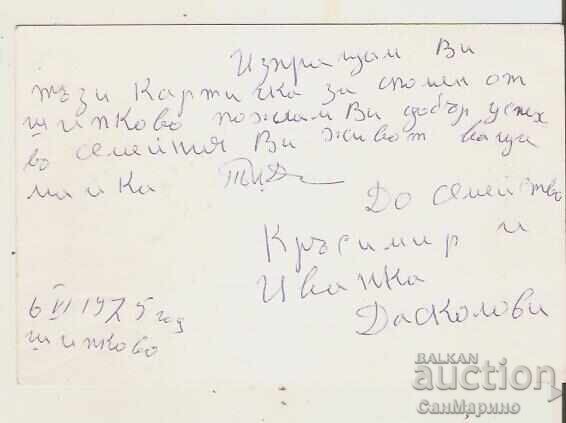 Изпращам Ви
тъзи Картичка за спомен от
шипково пожлам Ви добър успех
во семейния Ви живот ваща
майка
До семейство
Кръсимир и
Иванка
Дасколови
6 VI 1975 год
шипково
BALKAN
auction
СанМарино